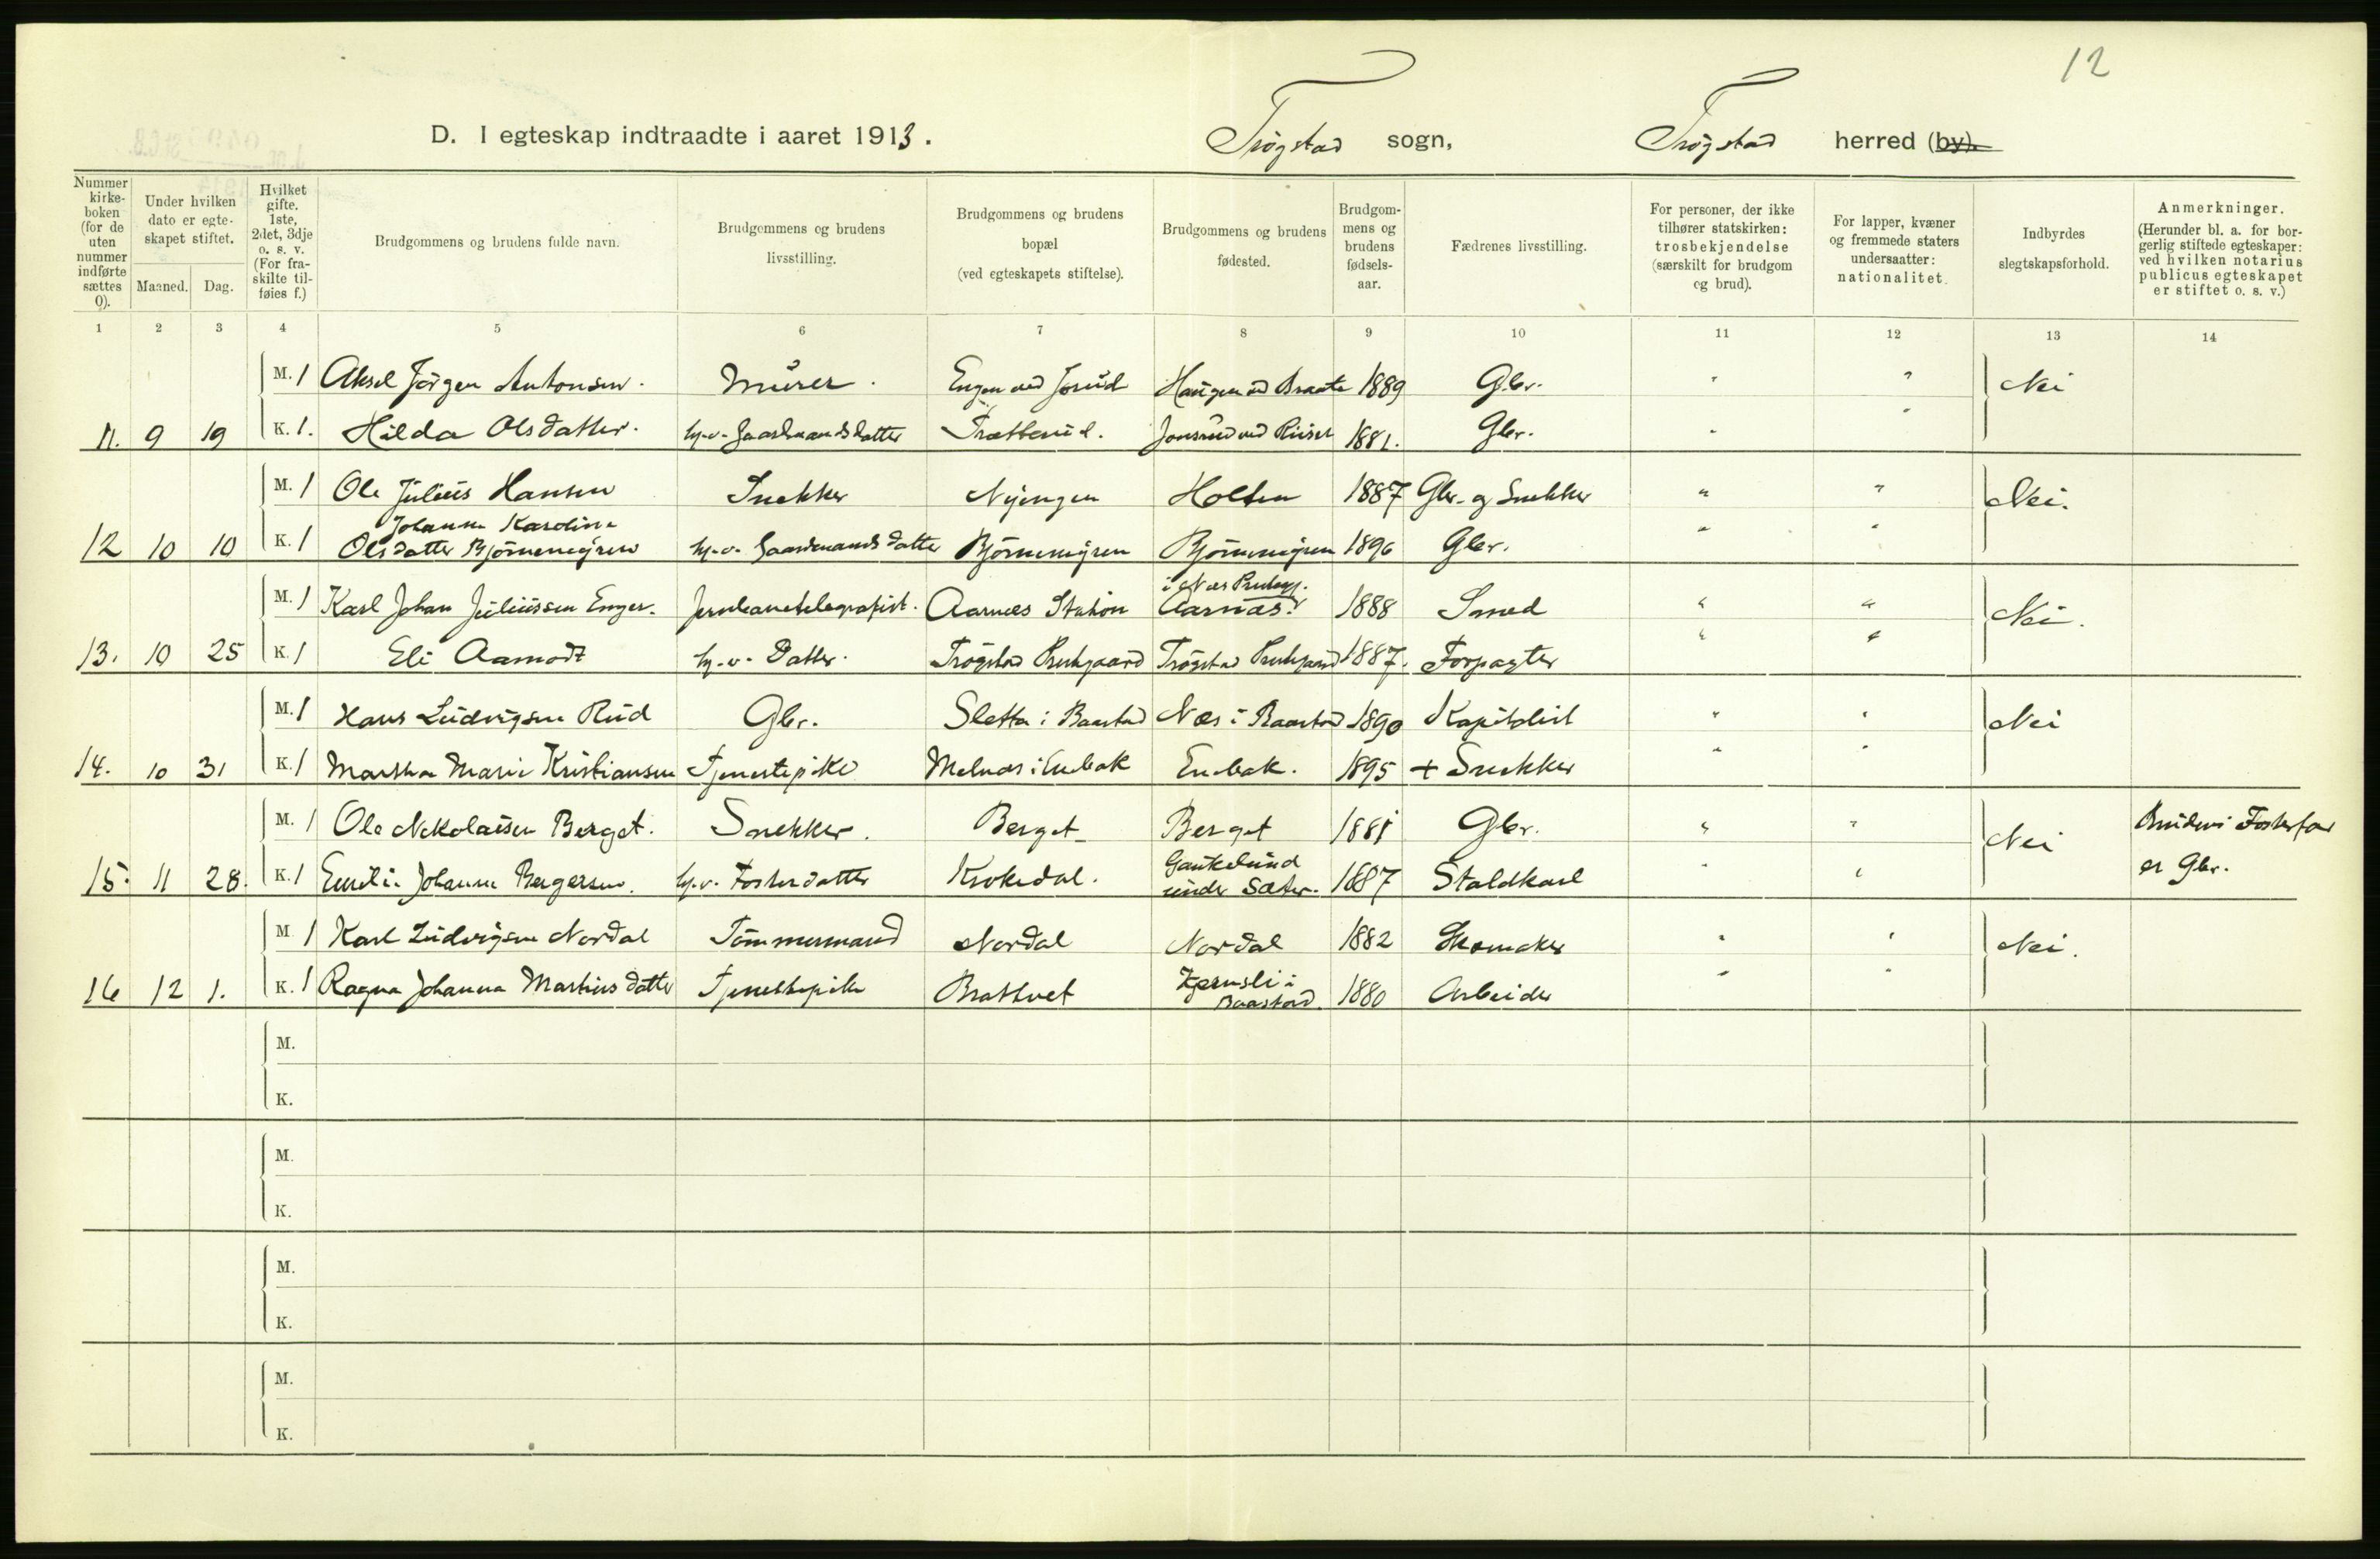 12
D. I egteskap indtraadte i aaret 1913. Trøgstad sogn, Trøgstad herred (by).
Nummer kirke-boken (for de uten nummer indførte sættes 0).
Under hvilken dato er egte-skapet stiftet.
Maaned. Dag.
Hvilket gifte. 1ste, 2det, 3dje o. s. v. (For fra-skilte til-føies f.)
Brudgommens og brudens fulde navn.
Brudgommens og brudens livsstilling.
Brudgommens og brudens bopæl (ved egteskapets stiftelse).
Brudgommens og brudens fødested.
Brudgom-mens og brudens fødsels-aar.
Fædrenes livsstilling.
For personer, der ikke tilhører statskirken: trosbekjendelse (særskilt for brudgom og brud).
For lapper, kvæner og fremmede staters undersaatter: nationalitet.
Indbyrdes slegtskapsforhold.
Anmerkninger. (Herunder bl. a. for bor-gerlig stiftede egteskaper: ved hvilken notarius publicus egteskapet er stiftet o. s. v.)
1 2 3 4 5 6 7 8 9 10 11 12 13 14
M. 1 Aksel Jørgen Antonsen. Murer. Engen ved Haugen ved Braate 1889 Gbr. " " Nei
11. 9 19 K. 1. Hilda Olsdatter. hj.v. Gaardmandsdatter Trætterud. Jonsrud ved 1881. Gbr. " "
M. 1 Ole Julius Hansen Snekker Nyengen Holten 1887 Gbr. og Snekker " " Nei.
Johanne Karoline
12 10 10 K. 1 Olsdatter Bjørnemyren hj.v. Gaardmandsdatter Bjørnemyren Bjørnemyren 1896 Gbr. " "
i Nes Prestegj.
M. 1 Karl Johan Juliussen Enger. Jernbanetelegrafist. Aarnæs Station Aarnæs. 1888 Smed " " Nei.
13. 10 25 K. 1 Eli Aamodt hj.v. Datter. Trøgstad Prestgaard Trøgstad Prestgaard 1887. Forpagter " "
M. 1 Hans Ludvigsen Rud Gbr. Sletta i Baastad Næs i Baastad 1890 Kapitalist " " Nei
14. 10 31 K. 1 Martha Marie Kristiansen Tjenestepike Melnæs i Enebak Enebak. 1895 + Snekker " "
M. 1 Ole Nikolaisen Berget. Snekker. Berget Berget 1881 Gbr. " " Nei Brudens Fosterfar
15. 11 28. K. 1 Emilie Johanne Bergersen. hj.v. Fosterdatter Krokedal. Gaukelund under Sæter. 1887 Staldkarl " " er Gbr.
M 1 Karl Ludvigsen Nordal Tømmermand Nordal Nordal 1882 Skomaker " " Nei.
16 12 1. K. 1 Ragna Johanna Martinsdatter Tjenestepike Brattvet Kjernsli i Baastad. 1880 Arbeider " "
M.
K.
M.
K.
M.
K.
M.
K.